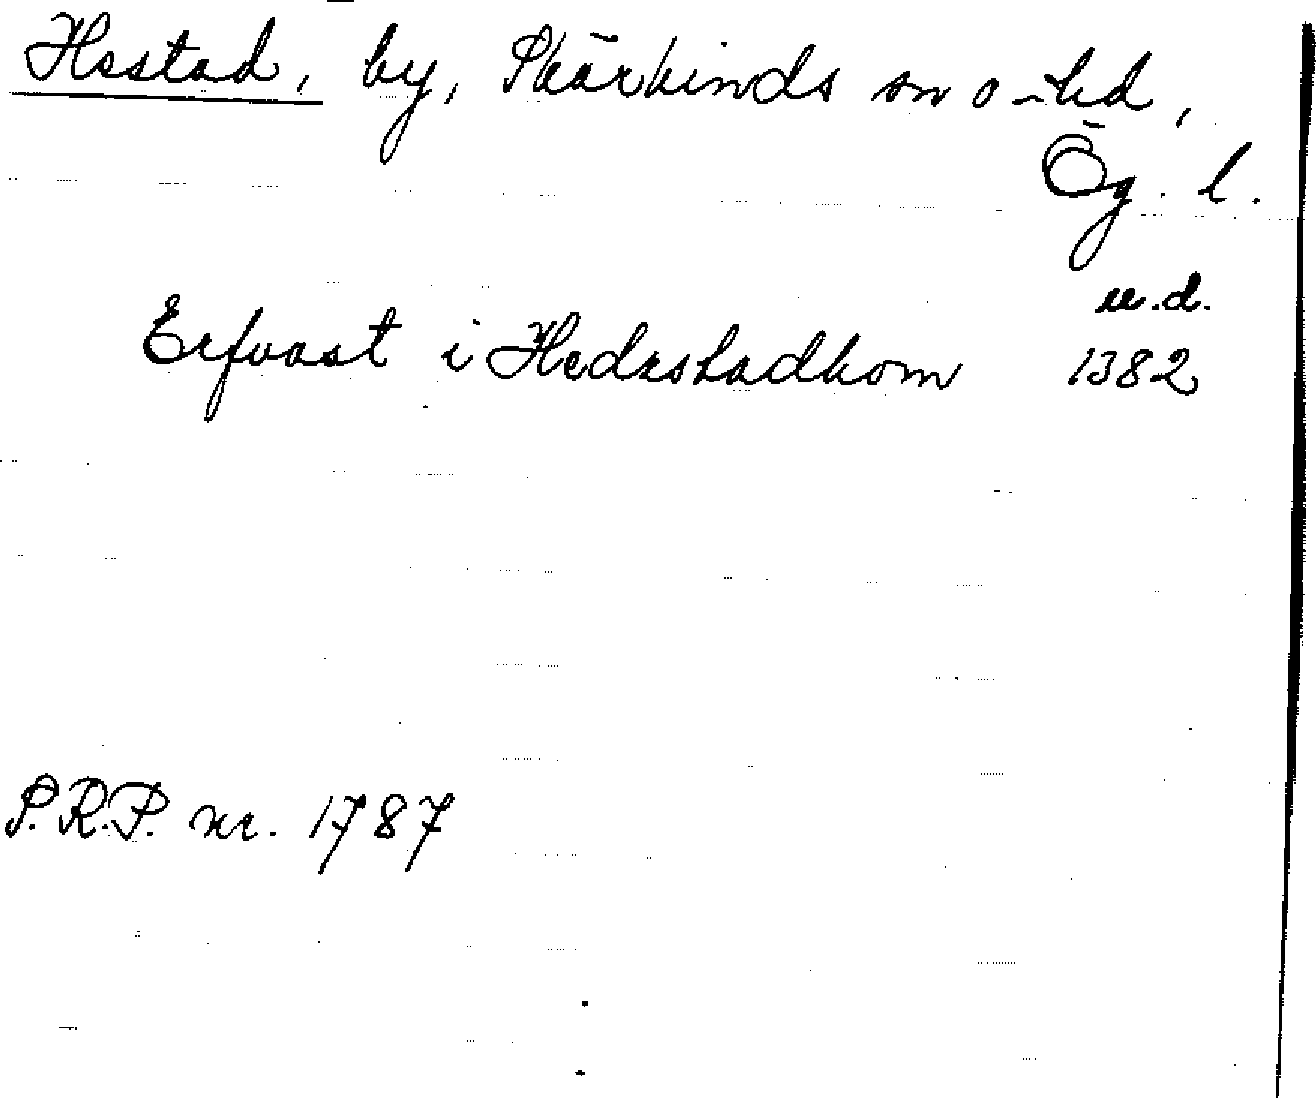 Hsstad, by, Skärkinds sn o -hd,
Ög. l.
u.d.
Erfvast i Hedrstadhom 1382
P.R.P. nr. 1787